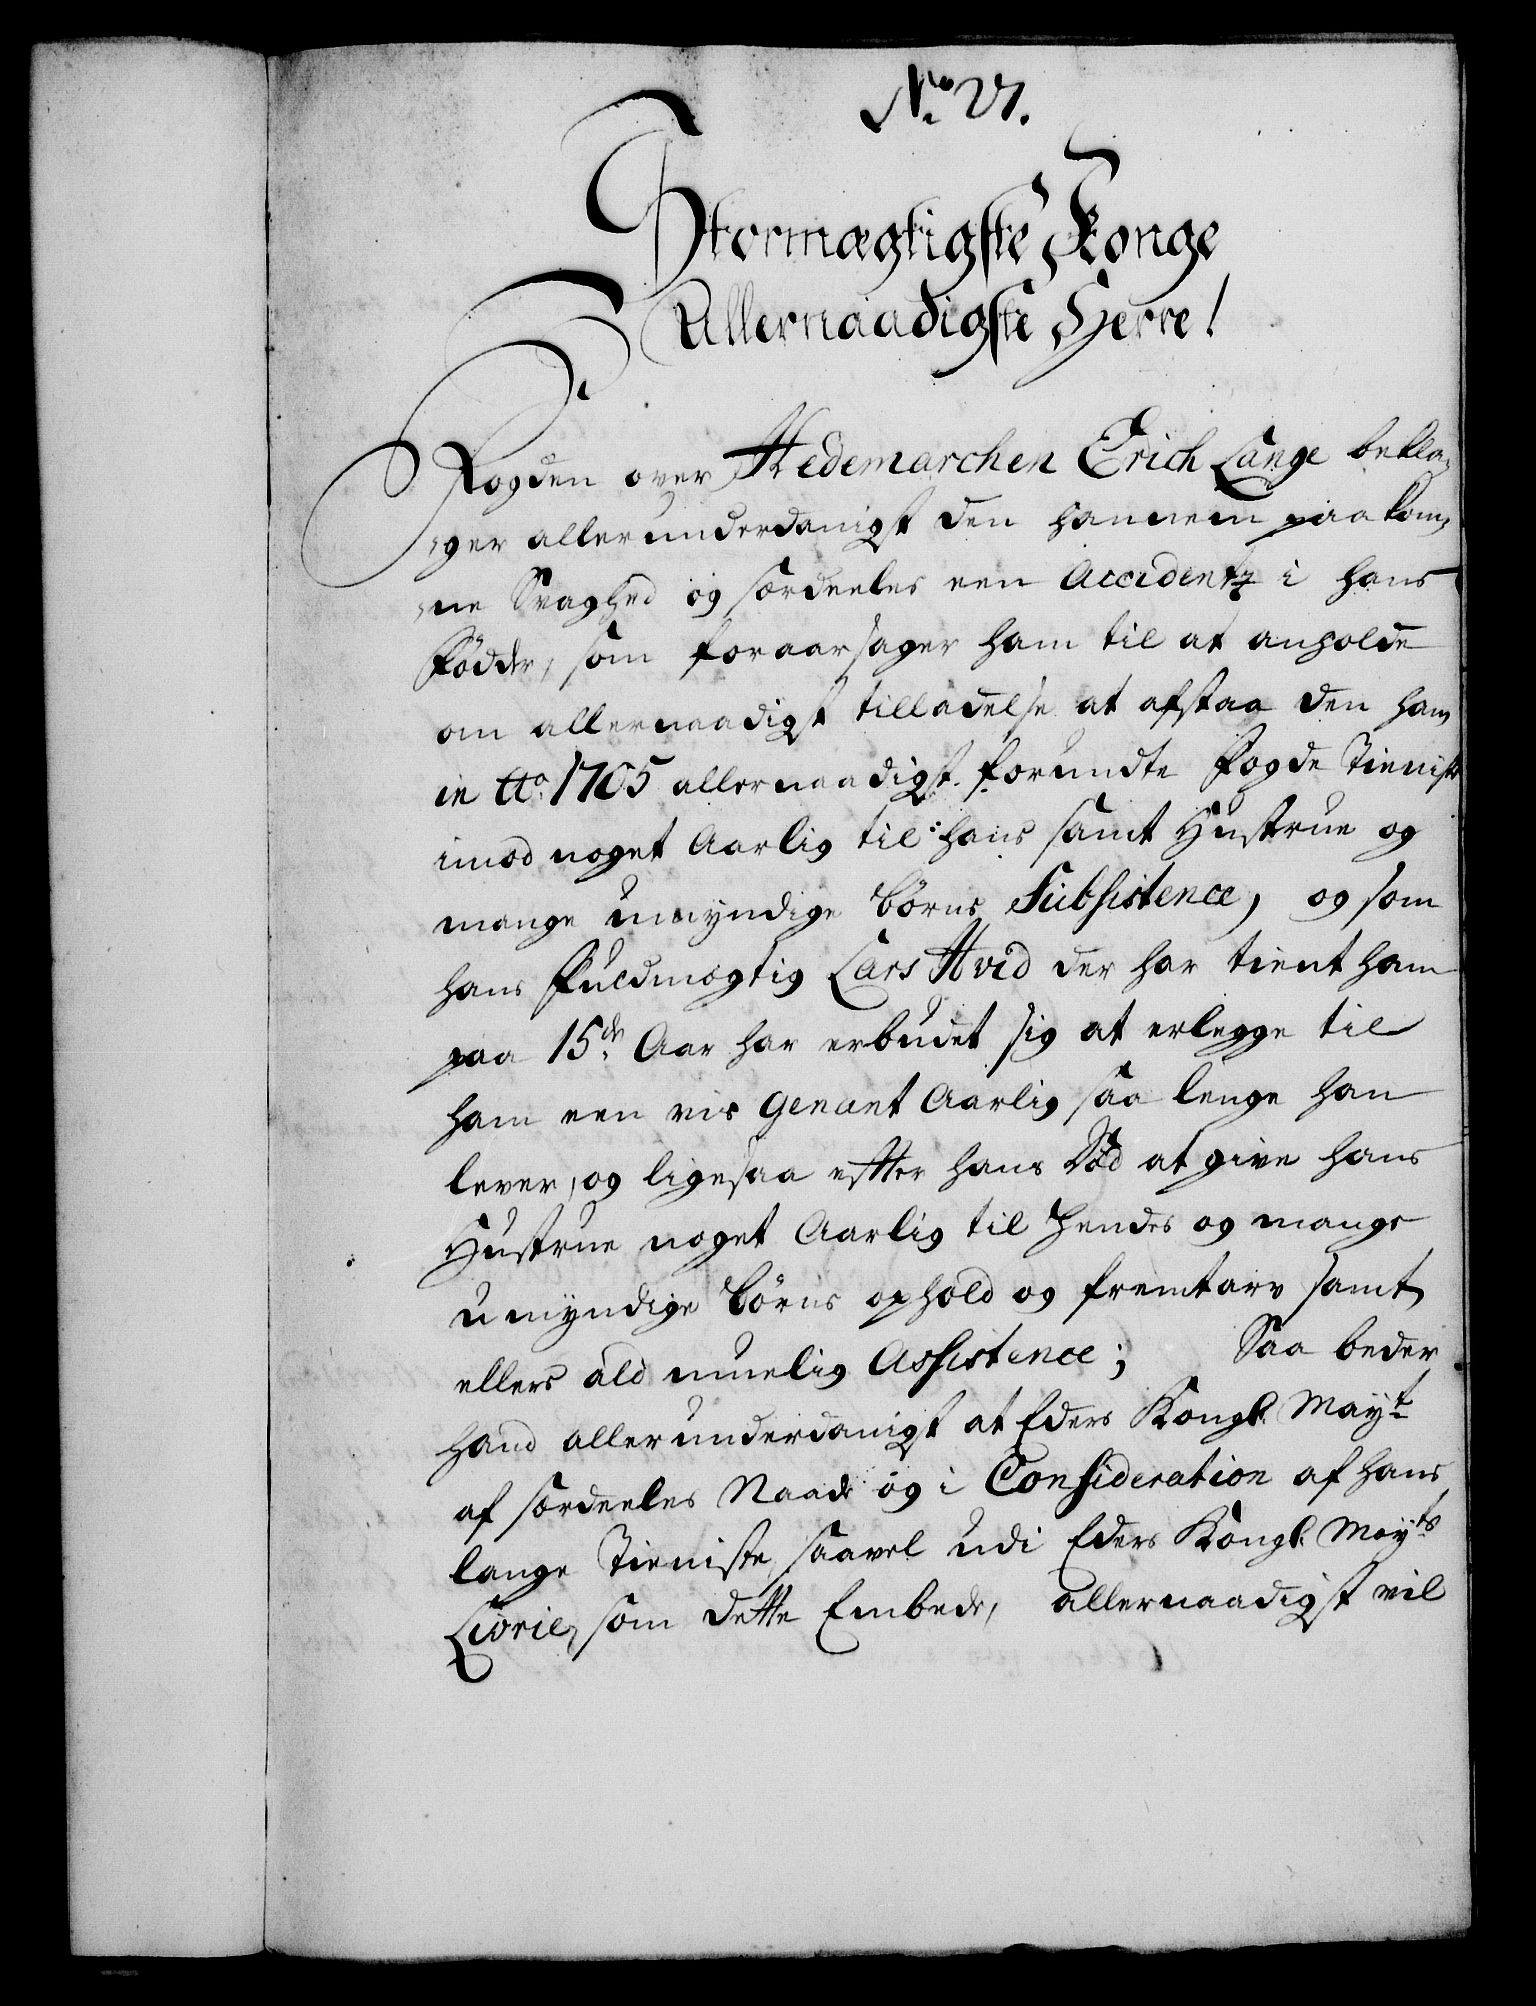 No 27.
Stormægtigste Konge
Allernaadigste Herre!
Fogden over Hedemarchen Erich Lange bekla,
,ger allerunderdanigst den hannem paakom,
,ne Svaghed og særdeeles een Accidentz i hans
Födder, som foraarsager ham til at anholde
om allernaadigst tilladelse at afstaa den ham
in Ao: 1705 allernaadigst forundte Fogde Tieniste
imod noget Aarlig til hans samt Hustrue og
mange umyndige börns Subsistence, og som
hans Fuldmægtig Lars Hvid der har tient ham
paa 15de Aar har erbudet sig at erlegge til
ham een vis genant Aarlig saa lenge han
lever, og ligesaa efter hans Död at give hans
Hustrue noget Aarlig til hendes og mange
umyndige börns ophold og fremtarv samt
ellers ald muelig Assistence; Saa beder
hand allerunderdanigst at Eders Kongl. Mayt
af særdeeles Naade og i Consideration af hans
lange Tieniste, saavel udi Eders Kongl. Mayts
Livrie, som dette Embede, allernaadigst vil